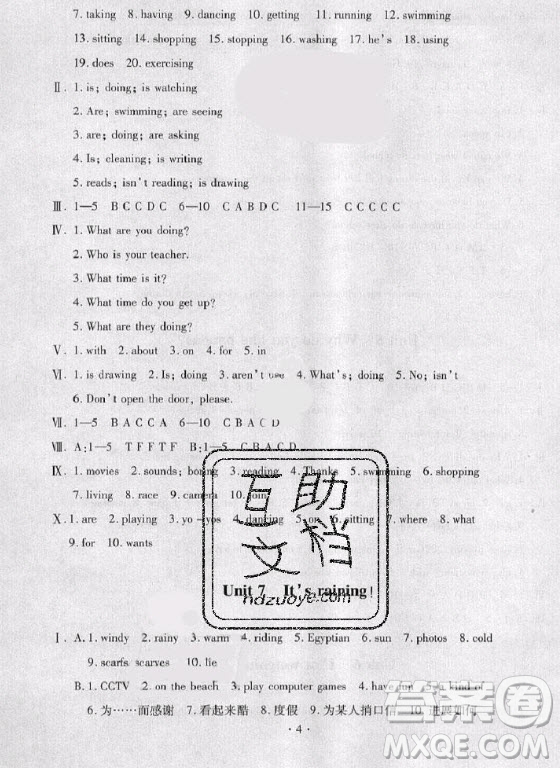 7. taking 8. having 9. dancing 10. getting 11. running 12. swimming
13. sitting 14. shopping 15. stopping 16. washing 17. he's 18. using
19. does 20. exercising
Ⅱ. 1. is; doing; is watching
2. Are; swimming; are seeing
3. are; doing; are asking
4. Is; cleaning; is writing
5. reads; isn't reading; is drawing
Ⅲ. 1—5 B C C D C 6—10 C A B D C 11—15 C C C C C
Ⅳ. 1. What are you doing?
2. Who is your teacher.
3. What time is it?
4. What time do you get up?
5. What are they doing?
Ⅴ. 1. with 2. about 3. on 4. for 5. in
Ⅵ. 1. is drawing 2. Is; doing 3. aren't 4. What's; doing 5. No; isn't
6. Don't open the door, please.
Ⅶ. 1—5 B A C C A 6—10 C B A C D
Ⅷ. A:1—5 T F F T F B:1—5 C B A C D
Ⅸ. 1. movies 2. sounds; boring 3. reading 4. Thanks 5. swimming 6. shopping
7. living 8. race 9. camera 10. join
Ⅹ. 1. are 2. playing 3. yo-yos 4. danking 5. on 6. sitting 7. where 8. what
9. for 10. wants
互助
文档
Unit 7 It's raining!
hdzuoye.com
Ⅰ. A. 1. windy 2. rainy 3. warm 4. riding 5. Egyptian 6. sun 7. photos 8. cold
9. scarfs scarves 10. lie
B. 1. CCTV 2. on the beach 3. play computer games 4. have fun 5. a kind of
6. 为……而感谢 7. 看起来酷 8. 度假 9. 为某人捎口信 10. 进展如何
· 4 ·
答案圈
MXQE.COM